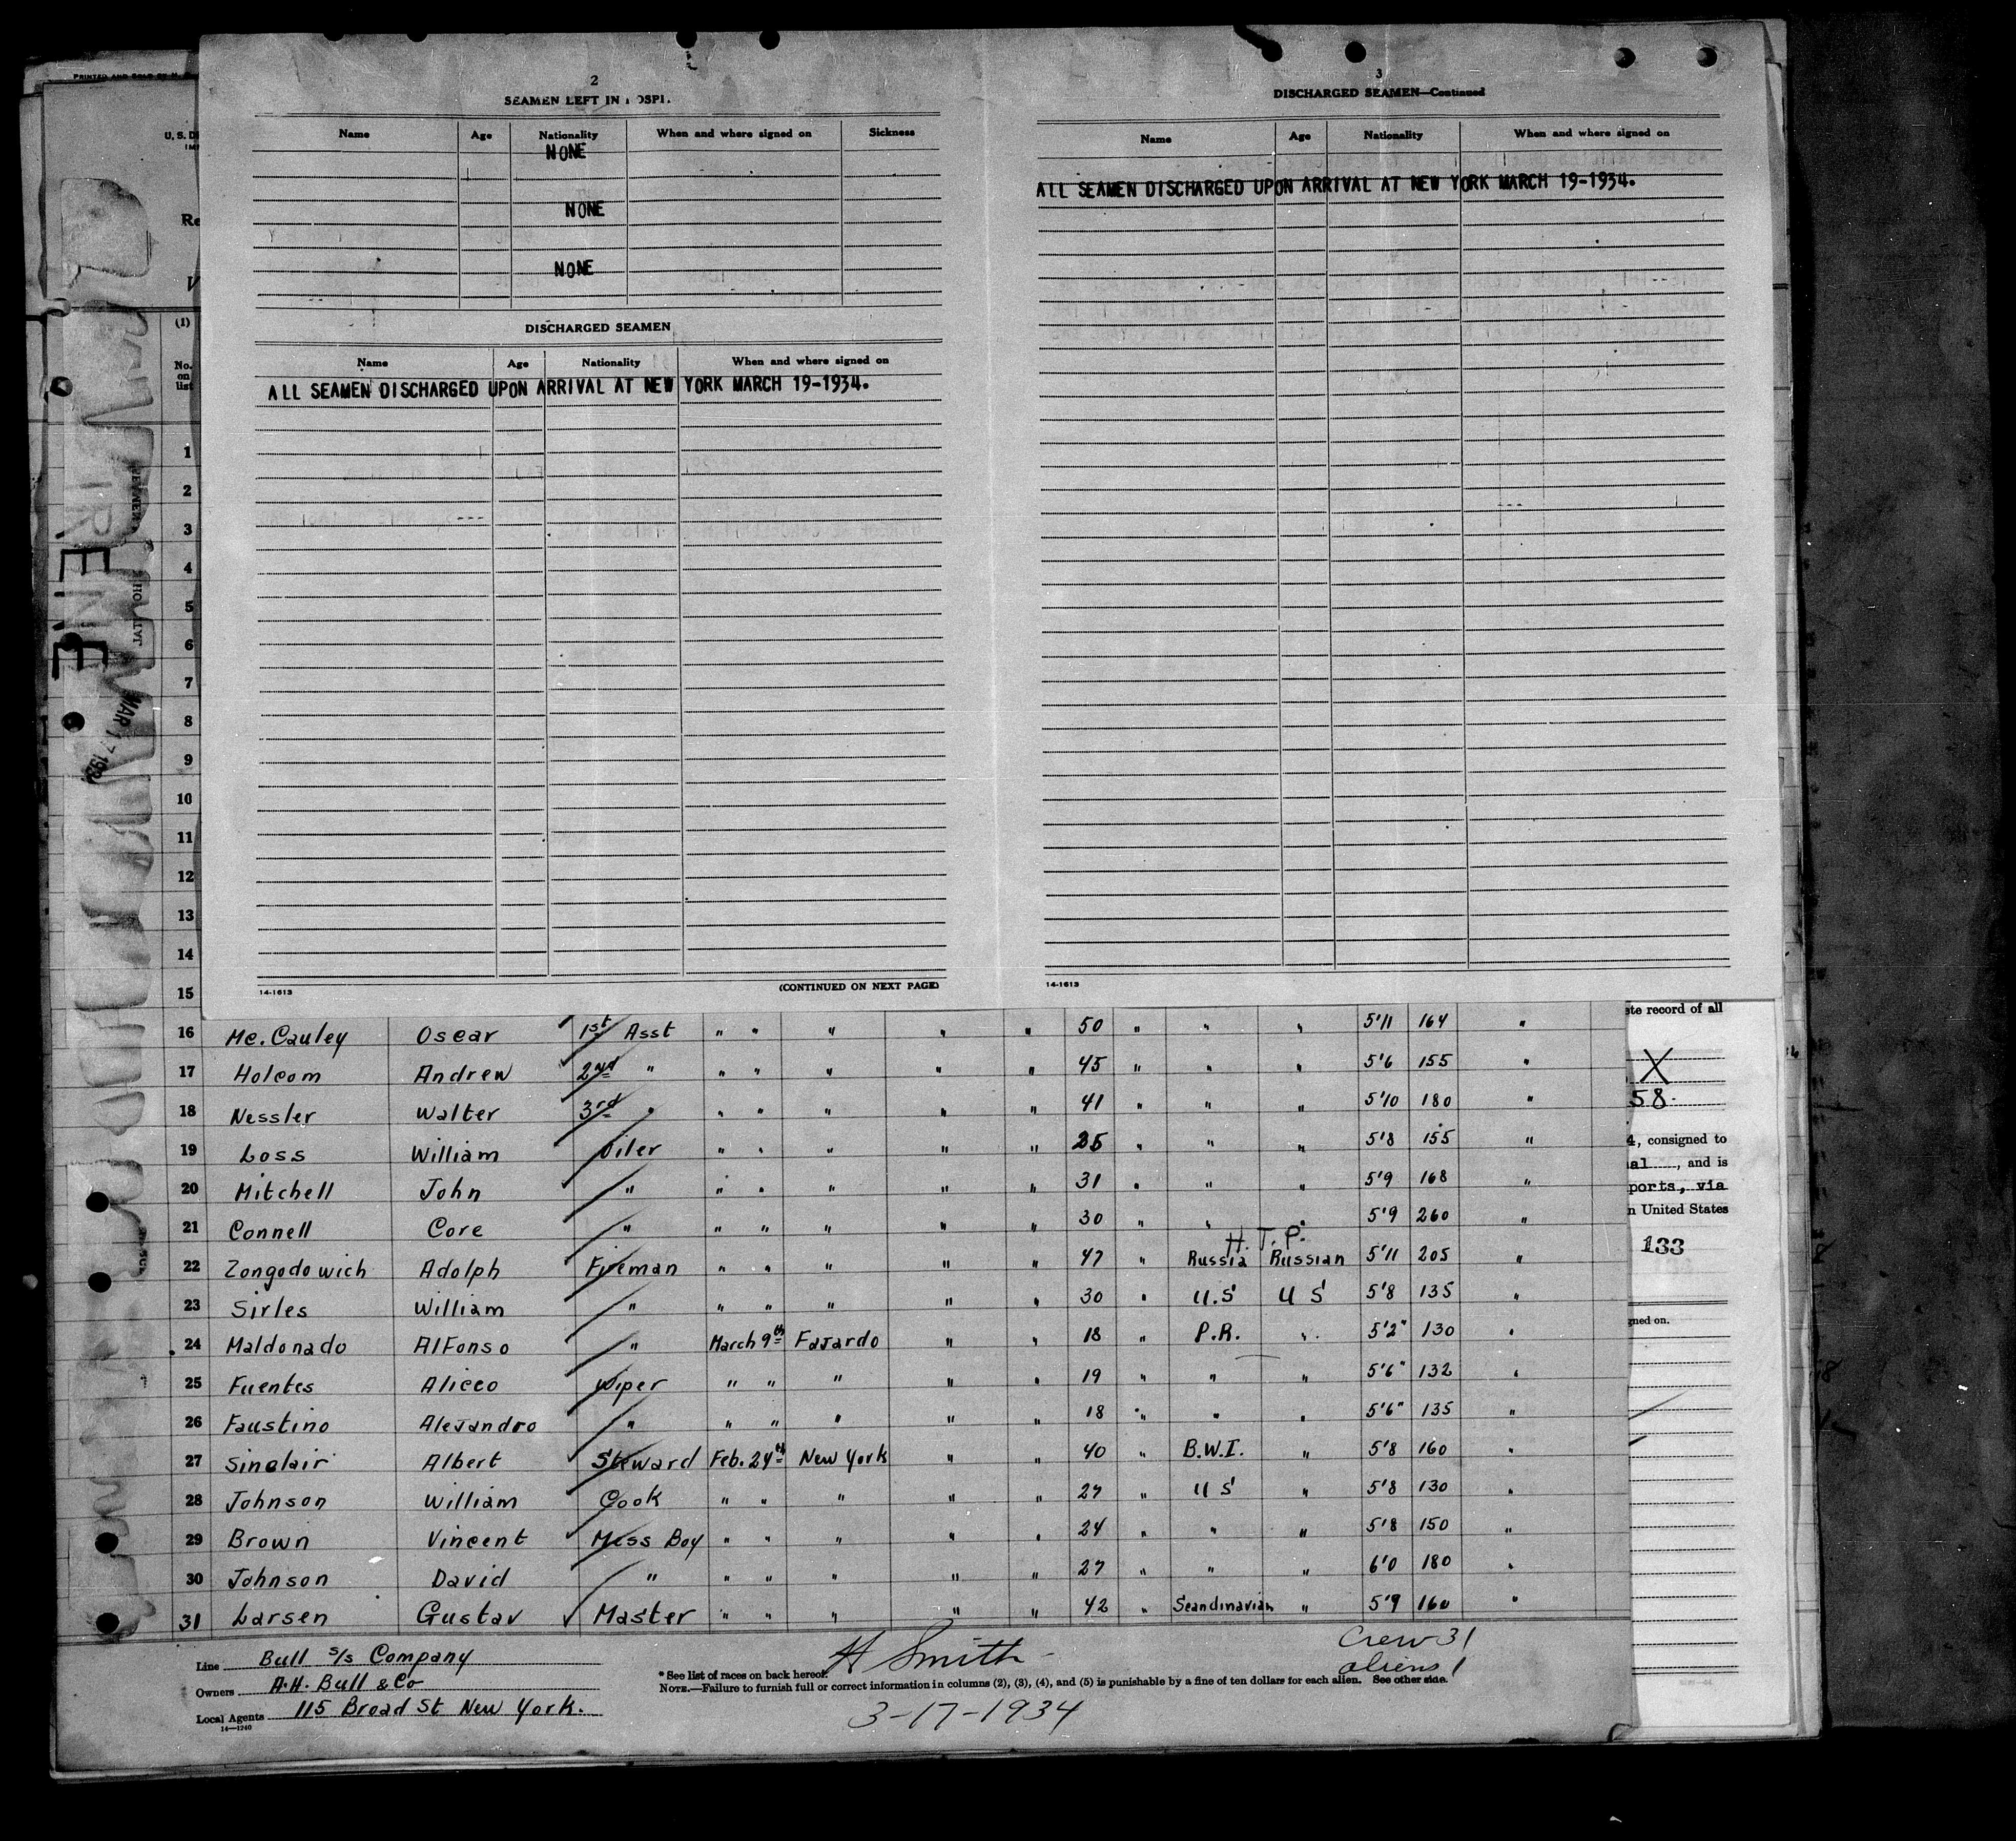 PRINTED AND SOLD BY
2
SEAMEN LEFT IN HOSPI
Name Age Nationality When and where signed on Sickness
NONE
NONE
NONE
DISCHARGED SEAMEN
Name Age Nationality When and where signed on
ALL SEAMEN DISCHARGED UPON ARRIVAL AT NEW YORK MARCH 19-1934.
14-1613
(CONTINUED ON NEXT PAGE)
3
DISCHARGED SEAMEN—Continued
Name Age Nationality When and where signed on
ALL SEAMEN DISCHARGED UPON ARRIVAL AT NEW YORK MARCH 19-1934.
14-1613
(1)
No. on list
1
2
3
4
5
6
7
8
9
10
11
12
13
14
15
16 Mc. Cauley Oscar 1st Asst " " " " " 50 " " " 5'11 164 "
17 Holcom Andrew 2nd " " " " " " 45 " " " 5'6 155 "
18 Nessler Walter 3rd " " " " " " 41 " " " 5'10 180 "
19 Loss William Oiler " " " " " 25 " " " 5'8 155 "
20 Mitchell John " " " " " " 31 " " " 5'9 168 "
21 Connell Core " " " " " " 30 " " " 5'9 260 "
H. T. P.
22 Zongodowich Adolph Fireman " " " " 47 " Russia Russian 5'11 205 "
23 Sirles William " " " " " 30 " U.S U S 5'8 135 "
24 Maldonado Alfonso " March 9th Fajardo " " 18 " P.R. " 5'2" 130 "
25 Fuentes Aliceo Wiper " " " " " 19 " " " 5'6" 132 "
26 Faustino Alejandro " " " " " " 18 " " " 5'6" 135 "
27 Sinclair Albert Steward Feb. 24th New York " " 40 " B.W.I. " 5'8 160 "
28 Johnson William Cook " " " " " 27 " U S " 5'8 130 "
29 Brown Vincent Mess Boy " " " " " 24 " " " 5'8 150 "
30 Johnson David " " " " " " 27 " " " 6'0 180 "
31 Larsen Gustav Master " " " " " 42 " Scandinavian " 5'9 160 "
Line Bull s/s Company
Owners A.H. Bull & Co
Local Agents 115 Broad St New York.
14—1240
H Smith
* See list of races on back hereof.
NOTE.—Failure to furnish full or correct information in columns (2), (3), (4), and (5) is punishable by a fine of ten dollars for each alien. See other side.
3-17-1934
Crew 31
aliens 1
record of all
X
58
4, consigned to
, and is
ports, via
n United States
133
gned on.
MAR 17 193